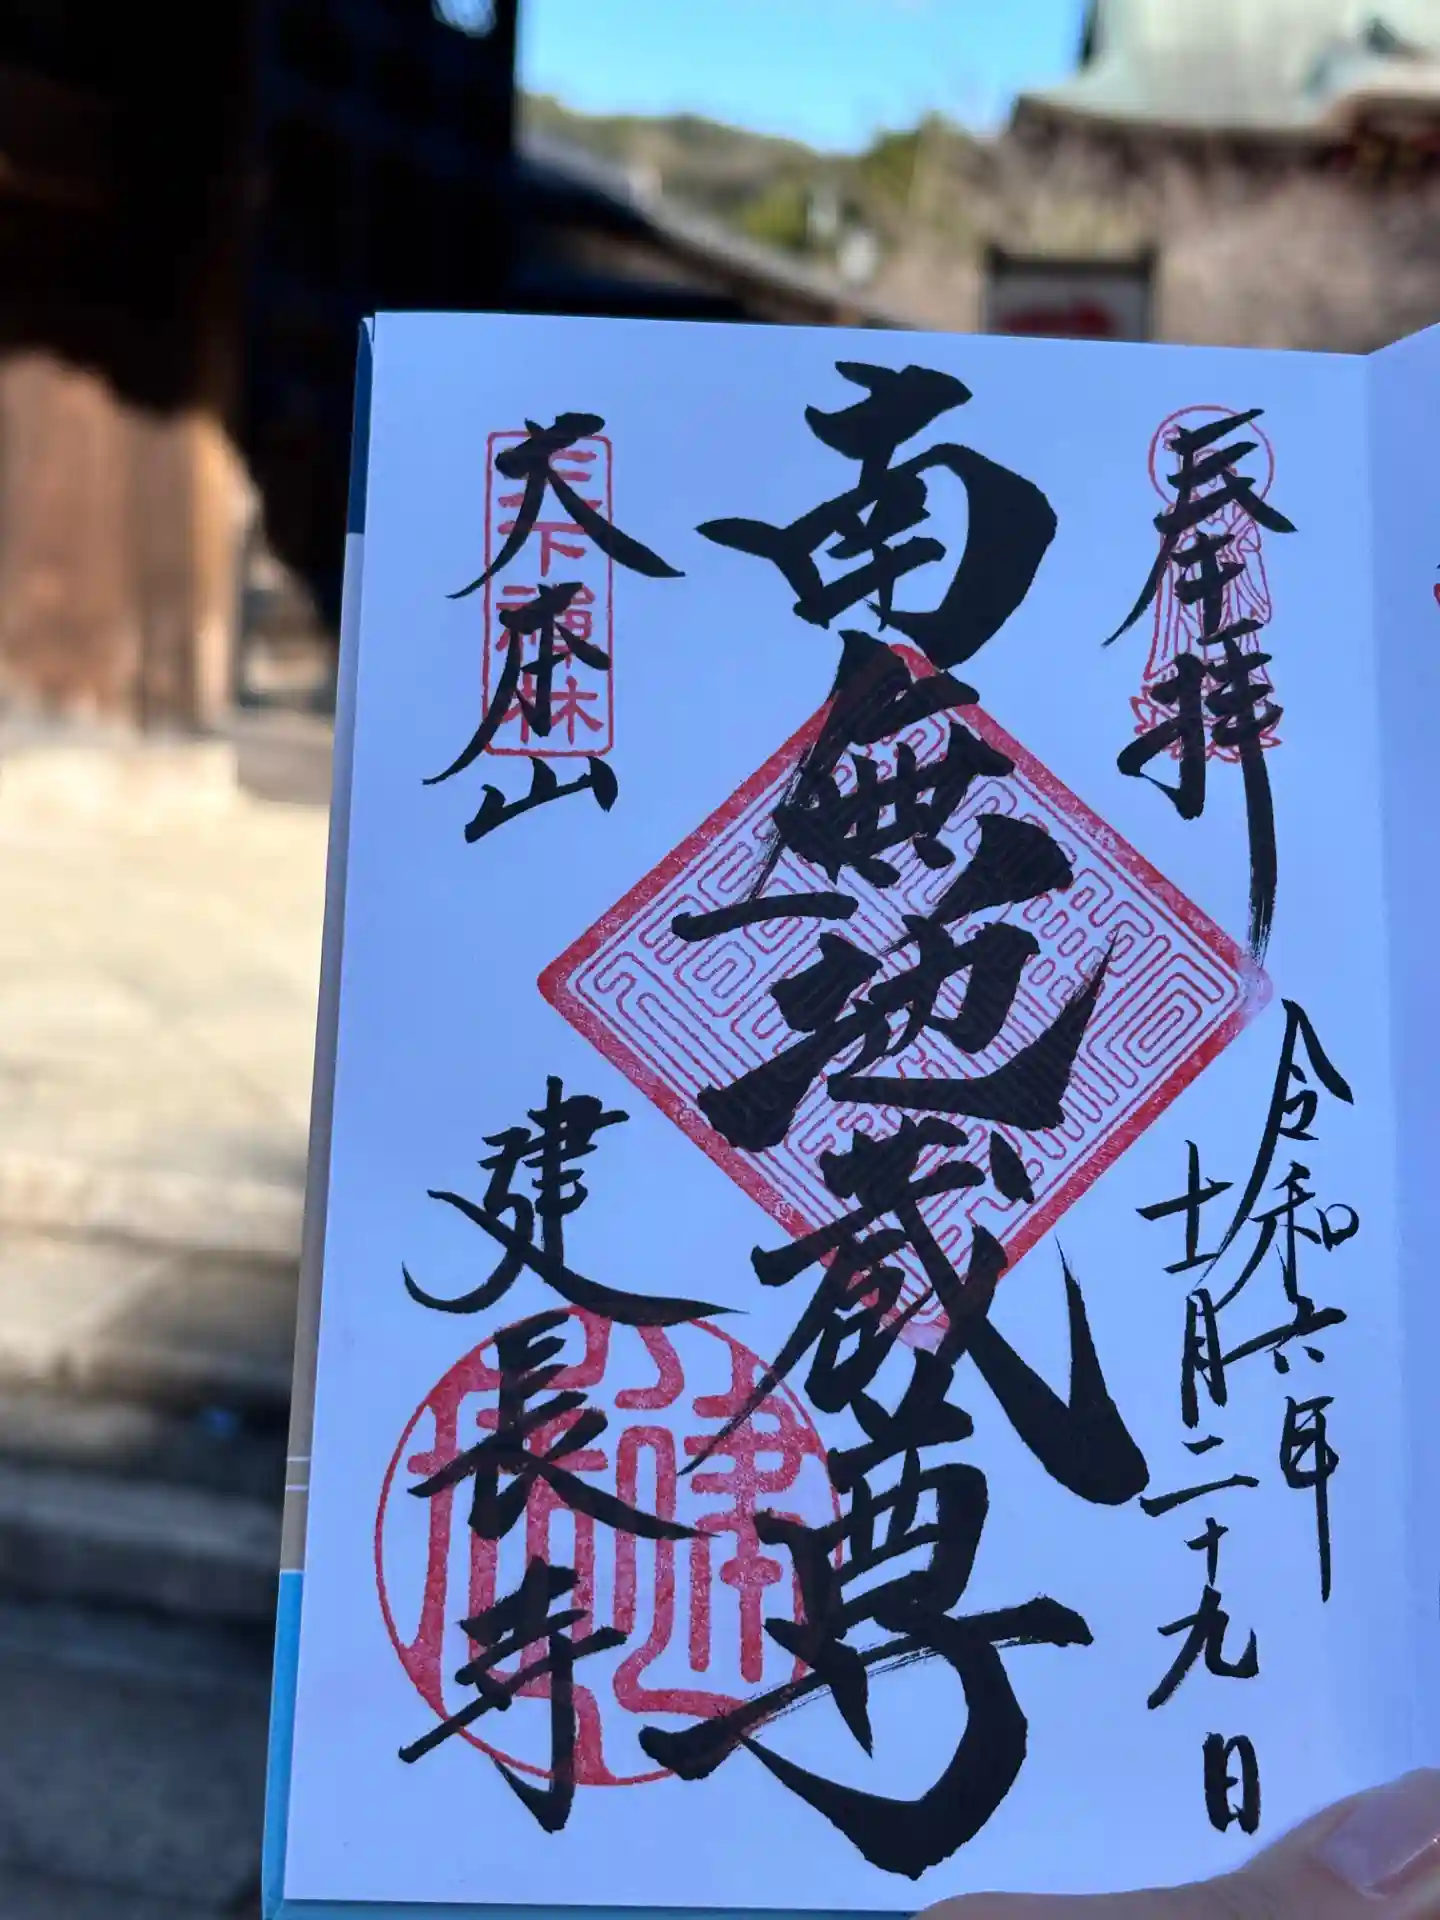 奉拝
令和六年
十一月二十九日
南無地蔵尊
大本山
建長寺
天下禅林